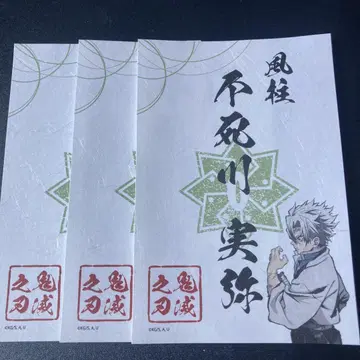 風柱
不死川 実弥
鬼滅
之刃
©KG/S,A,U
鬼滅
之刃
©KG/S,A,U
鬼滅
之刃
©KG/S,A,U